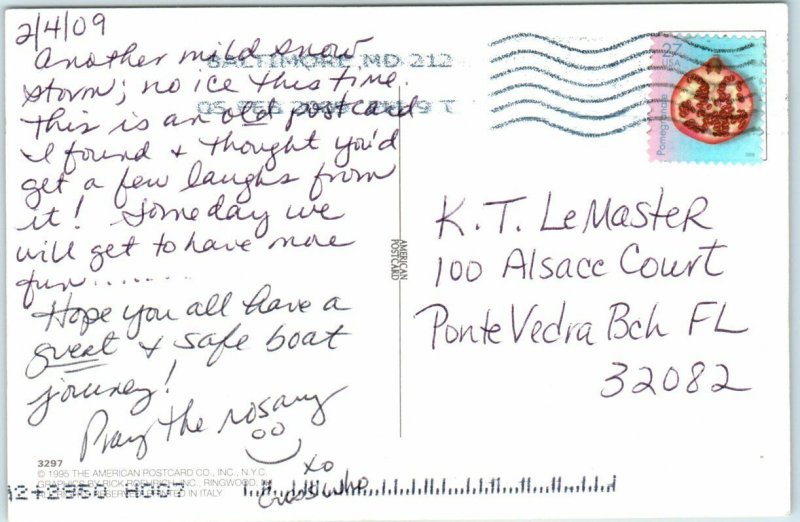 2/4/09
Another mild snow
storm; no ice this time.
This is an old postcard
I found + thought you'd
get a few laughs from
it! Someday we
will get to have more
fun.......
Hope you all have a
great + safe boat
journey!
Pray the rosary
xo
Guess Who
BALTIMORE, MD 212
05 FEB
27
USA
Pomegranate
K.T. LeMaster
100 Alsace Court
Ponte Vedra Bch FL
32082
AMERICAN
POSTCARD
3297
© 1995 THE AMERICAN POSTCARD CO., INC., N.Y.C.
GRAPHICS BY RICK ROEHRICH, INC., RINGWOOD,
PRINTED IN ITALY